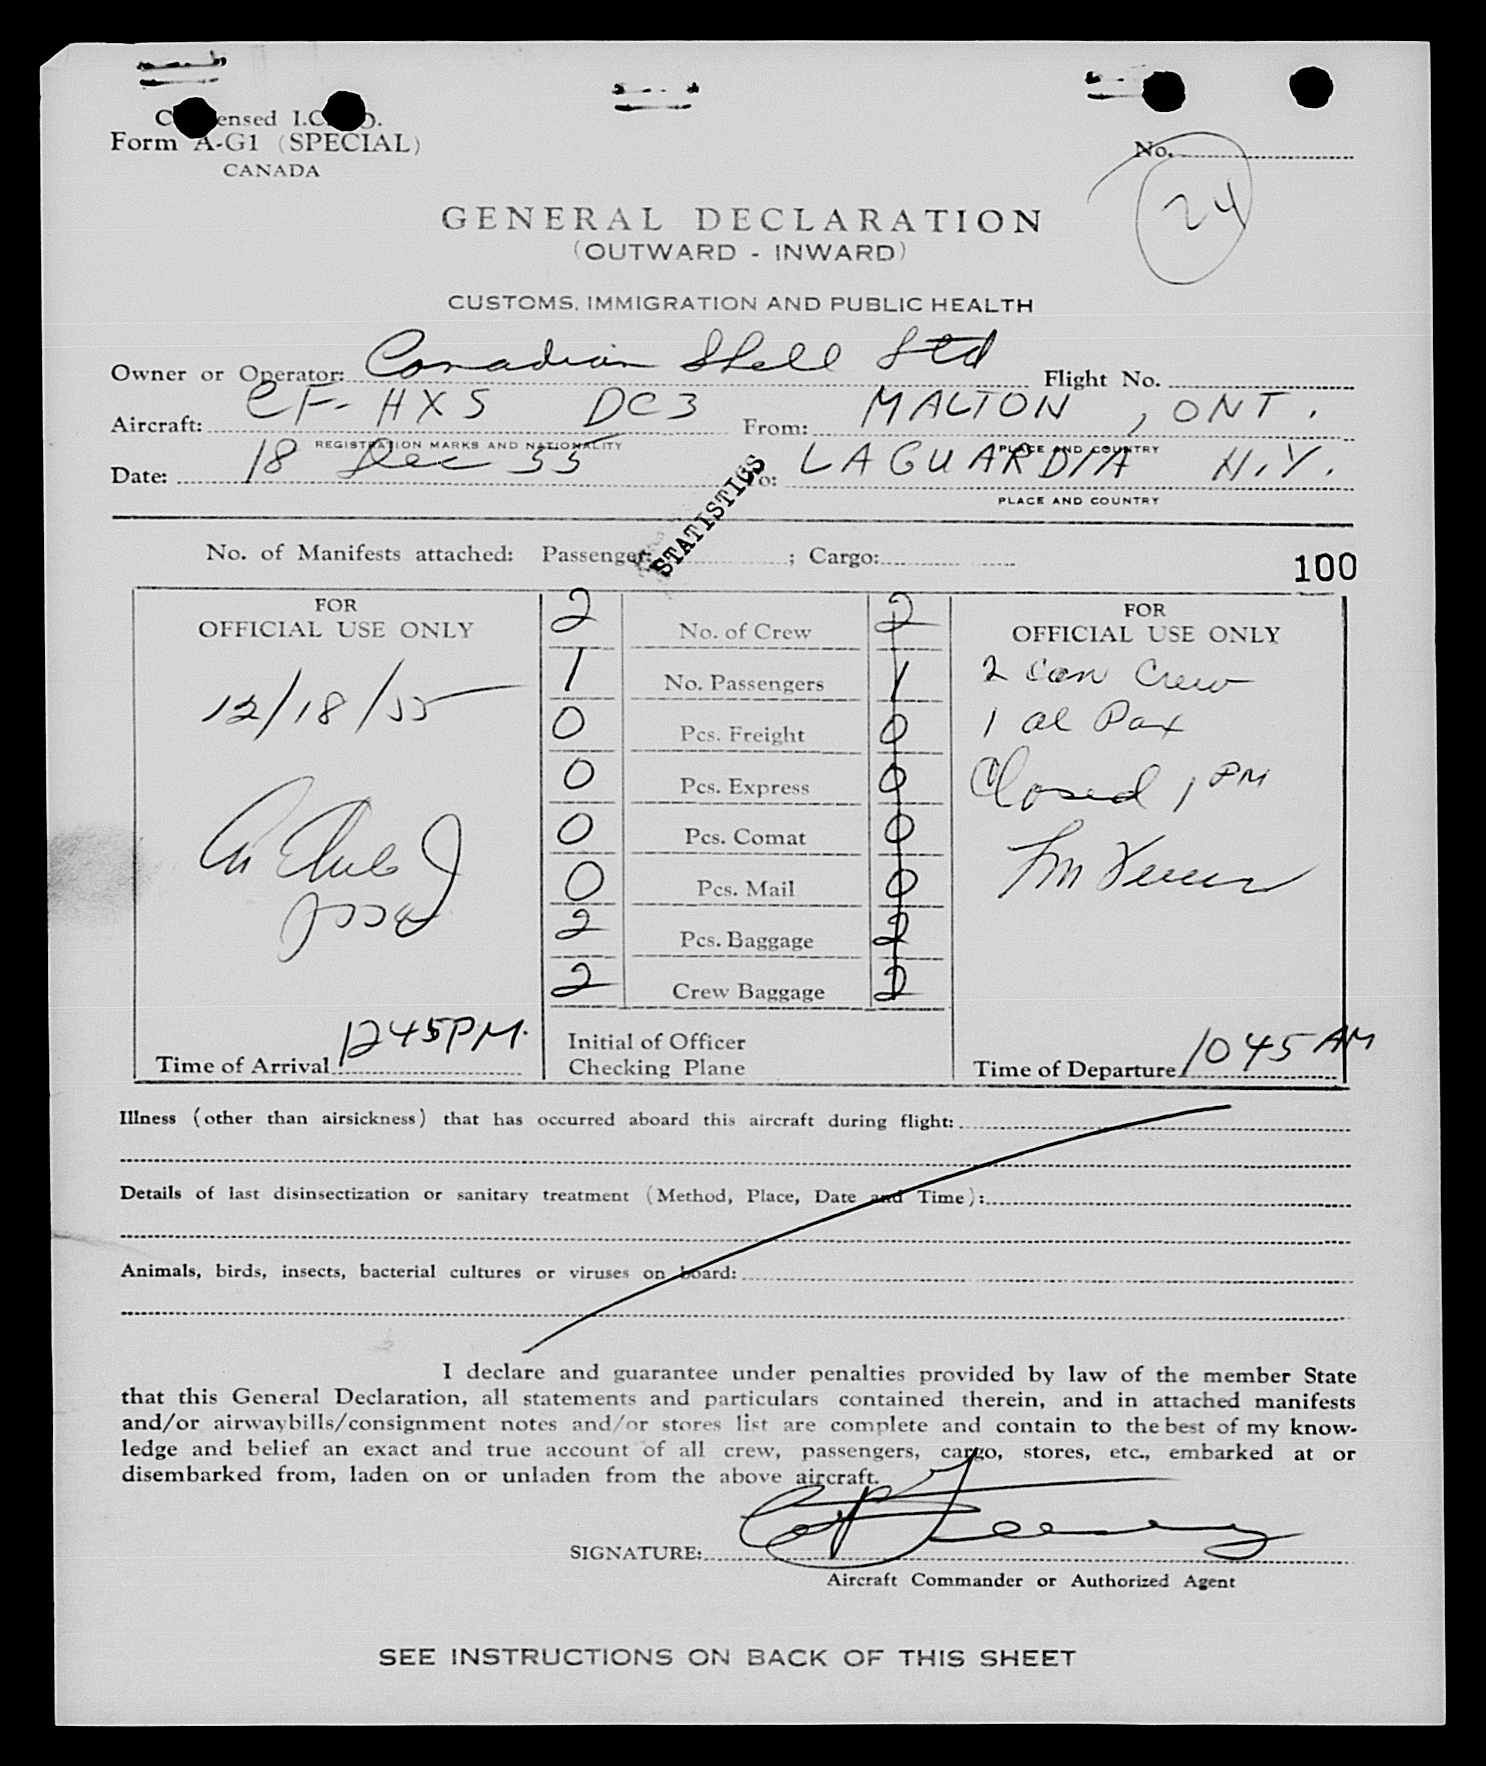 Condensed I.C.A.O.
Form A-G1 (SPECIAL)
CANADA
No.
24
GENERAL DECLARATION
(OUTWARD - INWARD)
CUSTOMS, IMMIGRATION AND PUBLIC HEALTH
Owner or Operator: Canadian Shell Ltd Flight No.
Aircraft: CF-HXS DC3 From: MALTON, ONT.
REGISTRATION MARKS AND NATIONALITY PLACE AND COUNTRY
Date: 18 Dec 55 To: LAGUARDIA N.Y.
PLACE AND COUNTRY
STATISTICS
No. of Manifests attached: Passenger: ; Cargo:
100
FOR
OFFICIAL USE ONLY
12/18/55
Time of Arrival 1245 PM.
2 No. of Crew 2
1 No. Passengers 1
0 Pcs. Freight 0
0 Pcs. Express 0
0 Pcs. Comat 0
0 Pcs. Mail 0
2 Pcs. Baggage 2
2 Crew Baggage 2
Initial of Officer
Checking Plane
FOR
OFFICIAL USE ONLY
2 Can Crew
1 al Pax
Closed 1 PM
Time of Departure 1045 AM
Illness (other than airsickness) that has occurred aboard this aircraft during flight:
Details of last disinsectization or sanitary treatment (Method, Place, Date and Time):
Animals, birds, insects, bacterial cultures or viruses on board:
I declare and guarantee under penalties provided by law of the member State
that this General Declaration, all statements and particulars contained therein, and in attached manifests
and/or airwaybills/consignment notes and/or stores list are complete and contain to the best of my know-
ledge and belief an exact and true account of all crew, passengers, cargo, stores, etc., embarked at or
disembarked from, laden on or unladen from the above aircraft.
SIGNATURE:
Aircraft Commander or Authorized Agent
SEE INSTRUCTIONS ON BACK OF THIS SHEET